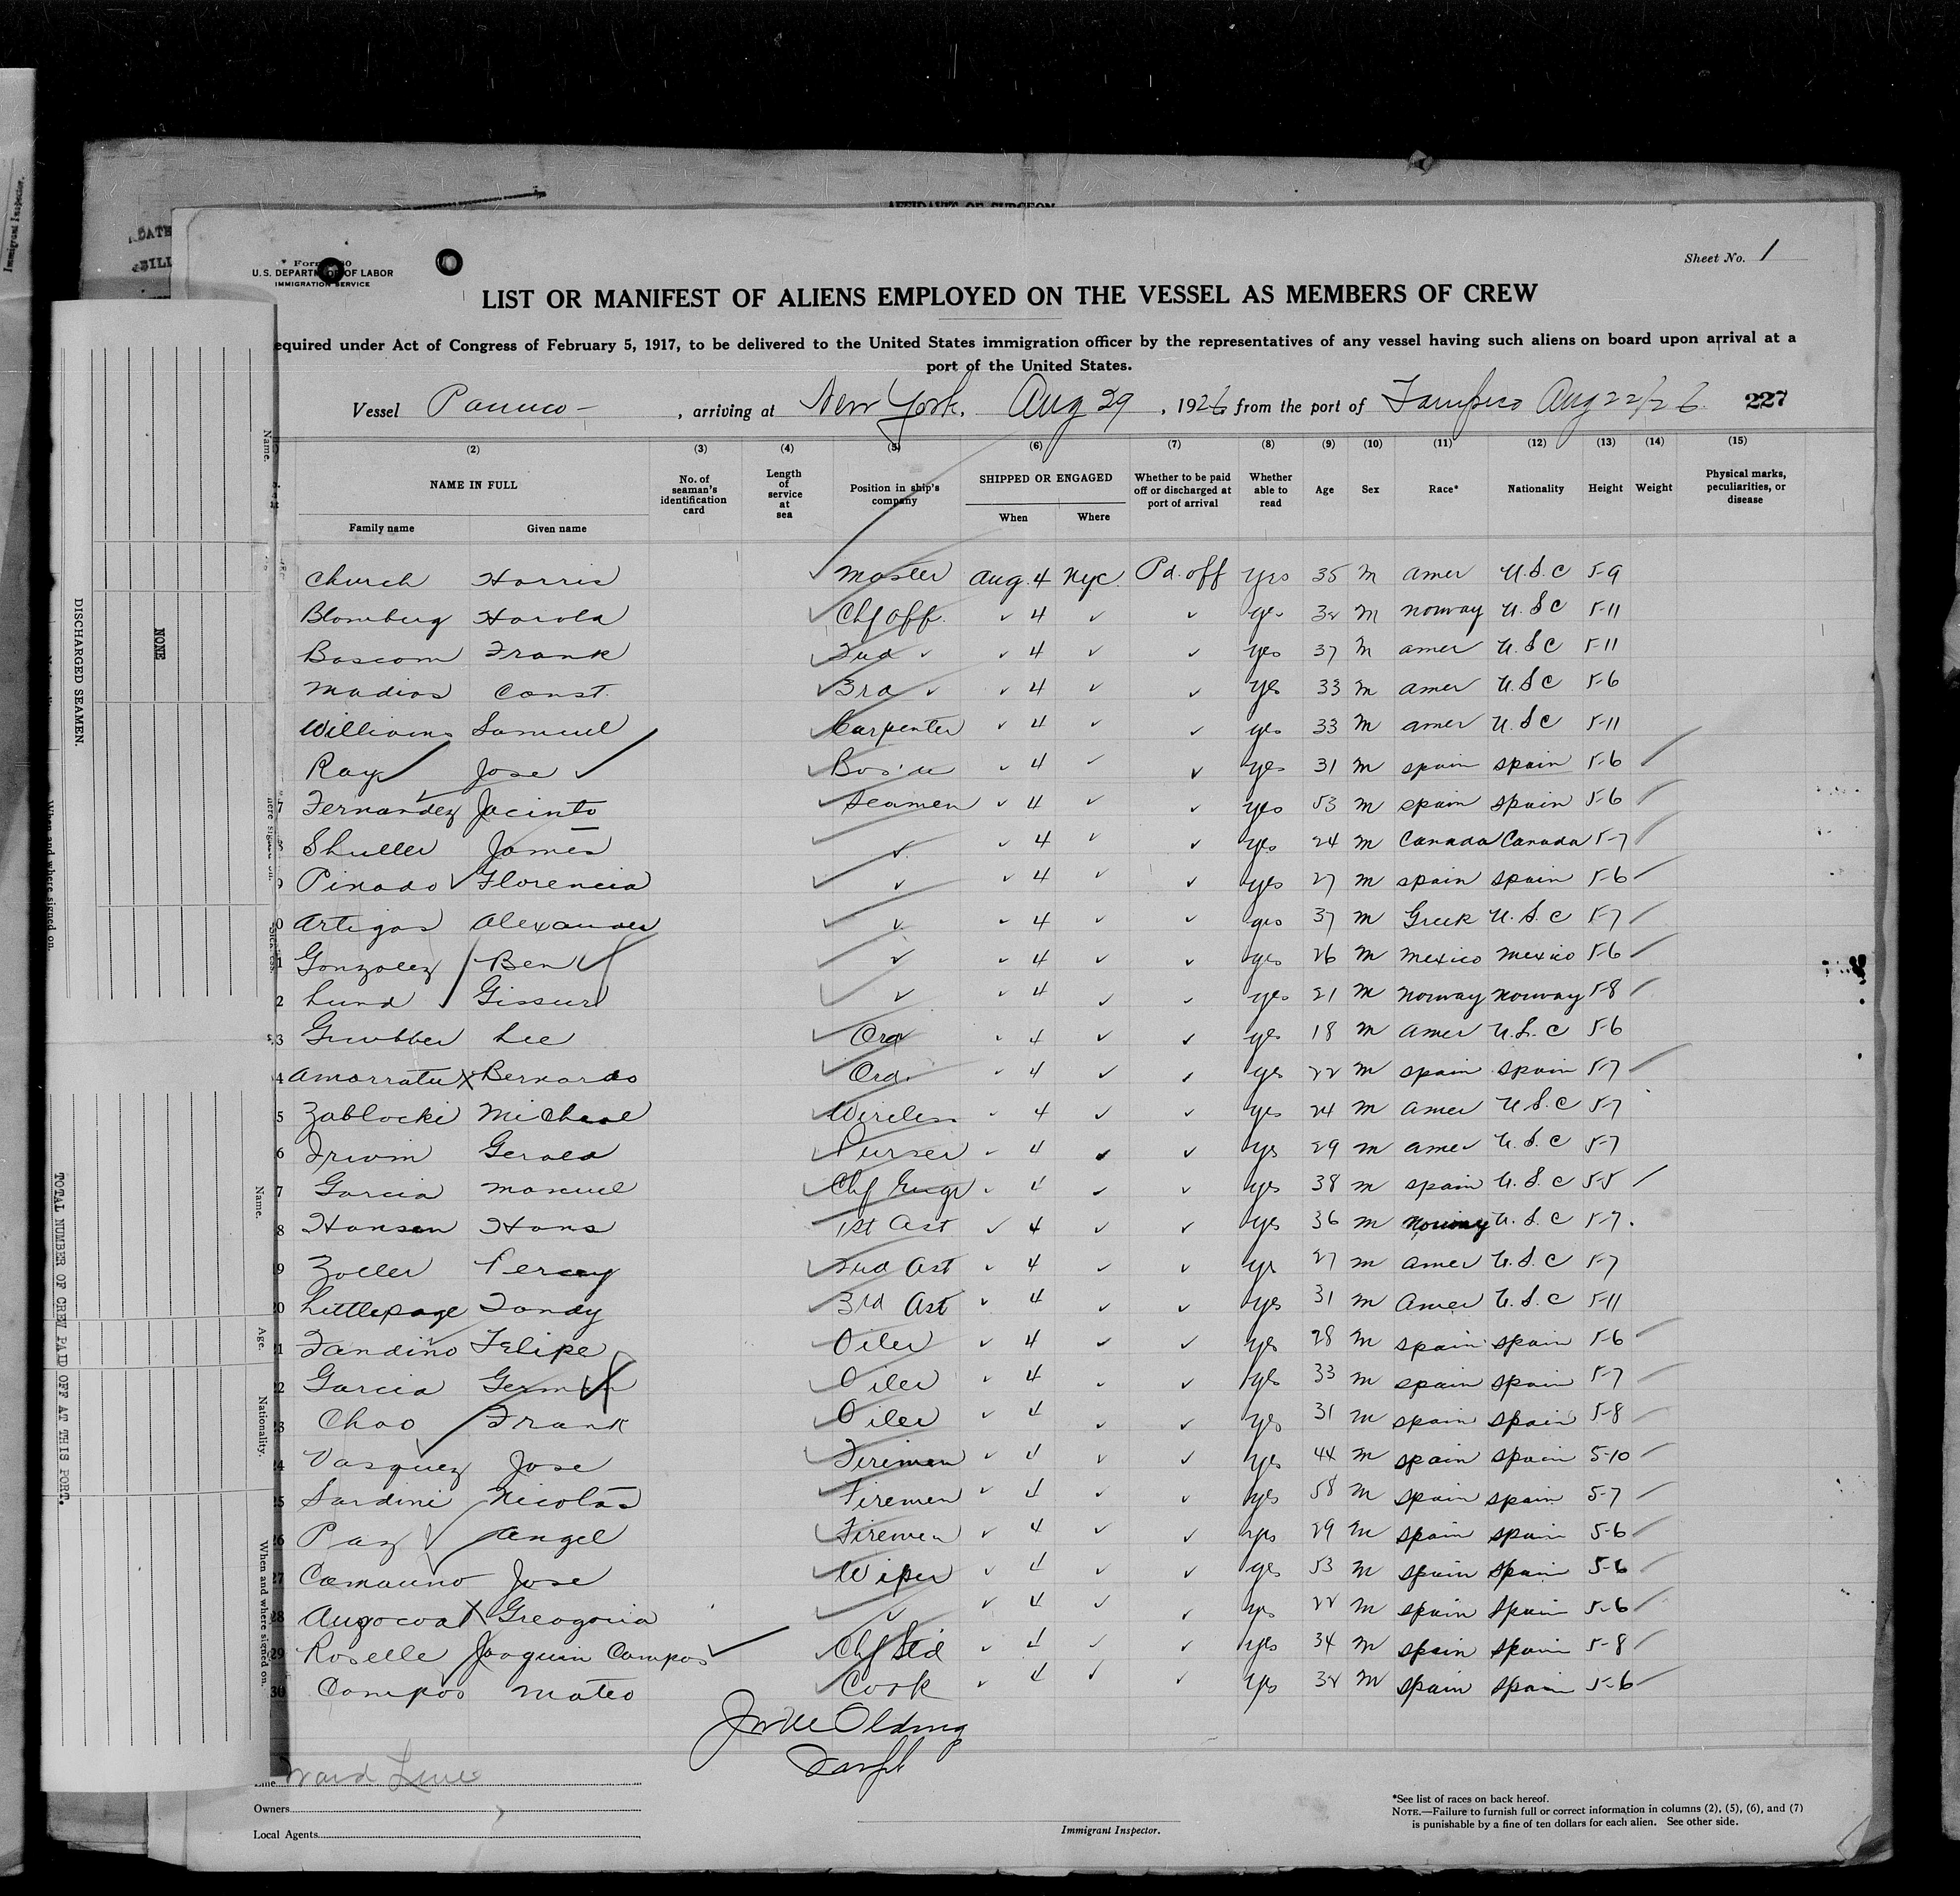 AFFIDAVIT OF SURGEON
Sheet No. 1
U.S. DEPARTMENT OF LABOR
IMMIGRATION SERVICE
LIST OR MANIFEST OF ALIENS EMPLOYED ON THE VESSEL AS MEMBERS OF CREW
equired under Act of Congress of February 5, 1917, to be delivered to the United States immigration officer by the representatives of any vessel having such aliens on board upon arrival at a
port of the United States.
Vessel Panuco - , arriving at New York, Aug 29 , 1926 from the port of Tampico Aug 22/26. 227
(2) (3) (4) (5) (6) (7) (8) (9) (10) (11) (12) (13) (14) (15)
NAME IN FULL No. of seaman's identification card Length of service at sea Position in ship's company SHIPPED OR ENGAGED Whether to be paid off or discharged at port of arrival Whether able to read Age Sex Race* Nationality Height Weight Physical marks, peculiarities, or disease
Family name Given name When Where
Church Harris Master Aug. 4 Nyc. Pd. off Yes 35 M Amer U.S.C 5-9
Blomberg Harold Chf Off. ✓ 4 ✓ ✓ yes M Norway U.S.C 5-11
Bascom Frank 2nd ✓ ✓ 4 ✓ ✓ yes 37 M Amer U.S.C 5-11
Madias Const. 3rd ✓ ✓ 4 ✓ ✓ yes 33 M Amer U.S.C 5-6
Williams Samuel Carpenter ✓ 4 ✓ ✓ yes 33 M Amer U.S.C 5-11
Ray Jose Bos'n ✓ 4 ✓ ✓ yes 31 M Spain Spain 5-6
7 Fernandez Jacinto Seamen ✓ 4 ✓ ✓ yes 53 M Spain Spain 5-6
Shuller James ✓ ✓ 4 ✓ ✓ yes 24 M Canada Canada 5-7
Pinado Florencia ✓ ✓ 4 ✓ ✓ yes 27 M Spain Spain 5-6
0 Artigas Alexander ✓ ✓ 4 ✓ ✓ yes 37 M Greek U.S.C 5-7
1 Gonzalez Ben ✓ ✓ 4 ✓ ✓ yes 26 M Mexico Mexico 5-6
2 Lund Gissur ✓ ✓ 4 ✓ ✓ yes 21 M Norway Norway 5-8
3 Grubber Lee Ord ✓ 4 ✓ ✓ yes 18 M Amer U.S.C 5-6
4 Bernardo Ord. ✓ 4 ✓ ✓ yes 22 M Spain Spain 5-7
5 Zablocki Micheal Wireless ✓ 4 ✓ ✓ yes 24 M Amer U.S.C 5-7
6 Irwin Gerald Purser ✓ 4 ✓ ✓ yes 29 M Amer U.S.C 5-7
7 Garcia Manuel Chf Engr ✓ 4 ✓ ✓ yes 38 M Spain U.S.C 5-5
8 Hansen Hans 1st Ast ✓ 4 ✓ ✓ yes 36 M Norway U.S.C 5-7.
9 Zoller Percy 2nd Ast ✓ 4 ✓ ✓ yes 27 M Amer U.S.C 5-7
20 Littlepage Tandy 3rd Ast ✓ 4 ✓ ✓ yes 31 M Amer U.S.C 5-11
1 Fandino Felipe Oiler ✓ 4 ✓ ✓ yes 28 M Spain Spain 5-6
22 Garcia German Oiler ✓ 4 ✓ ✓ yes 33 M Spain Spain 5-7
23 Chao Frank Oiler ✓ 4 ✓ ✓ yes 31 M Spain Spain 5-8
24 Vasquez Jose Firemen ✓ 4 ✓ ✓ yes 44 M Spain Spain 5-10
25 Sardini Nicolas Firemen ✓ 4 ✓ ✓ yes 58 M Spain Spain 5-7
26 Paz Angel Firemen ✓ 4 ✓ ✓ yes 29 M Spain Spain 5-6
27 Camauno Jose Wiper ✓ 4 ✓ ✓ yes 53 M Spain Spain 5-6
28 Greogoria ✓ ✓ 4 ✓ ✓ yes 22 M Spain Spain 5-6
29 Roselle Joaquin Campos Chf Std ✓ 4 ✓ ✓ yes 34 M Spain Spain 5-8
30 Campos Mateo Cook ✓ 4 ✓ ✓ yes M Spain Spain 5-6
Ward Line
Owners
Local Agents
Immigrant Inspector.
*See list of races on back hereof.
NOTE.—Failure to furnish full or correct information in columns (2), (5), (6), and (7)
is punishable by a fine of ten dollars for each alien. See other side.
Immigrant Inspector.
DISCHARGED SEAMEN.
NONE
TOTAL NUMBER OF CREW PAID OFF AT THIS PORT.
Name.
When and where signed on.
Name.
Age.
Nationality.
When and where signed on.